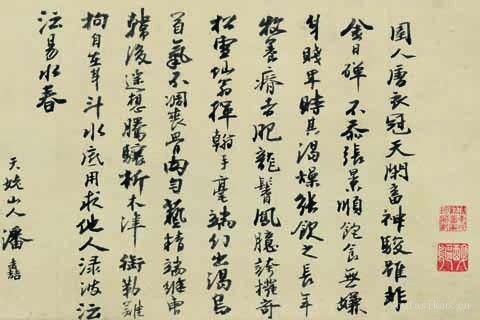 圉人唐衣冠天閑畜神駿雖非
金日磾不忝張景順飲食無嫌
身賤卑時其渴燥強飲之長年
牧養瘠者肥龍鬐風臆誇權奇
松雪仙翁揮翰手毫端幻出渴烏
首氣不凋喪骨肉勻藝精端繼曹
韓後遥想騰驤析木津銜勒難
拘自在身斗水底用求他人渌波泛
泛易水春
天姥山人潘嘉